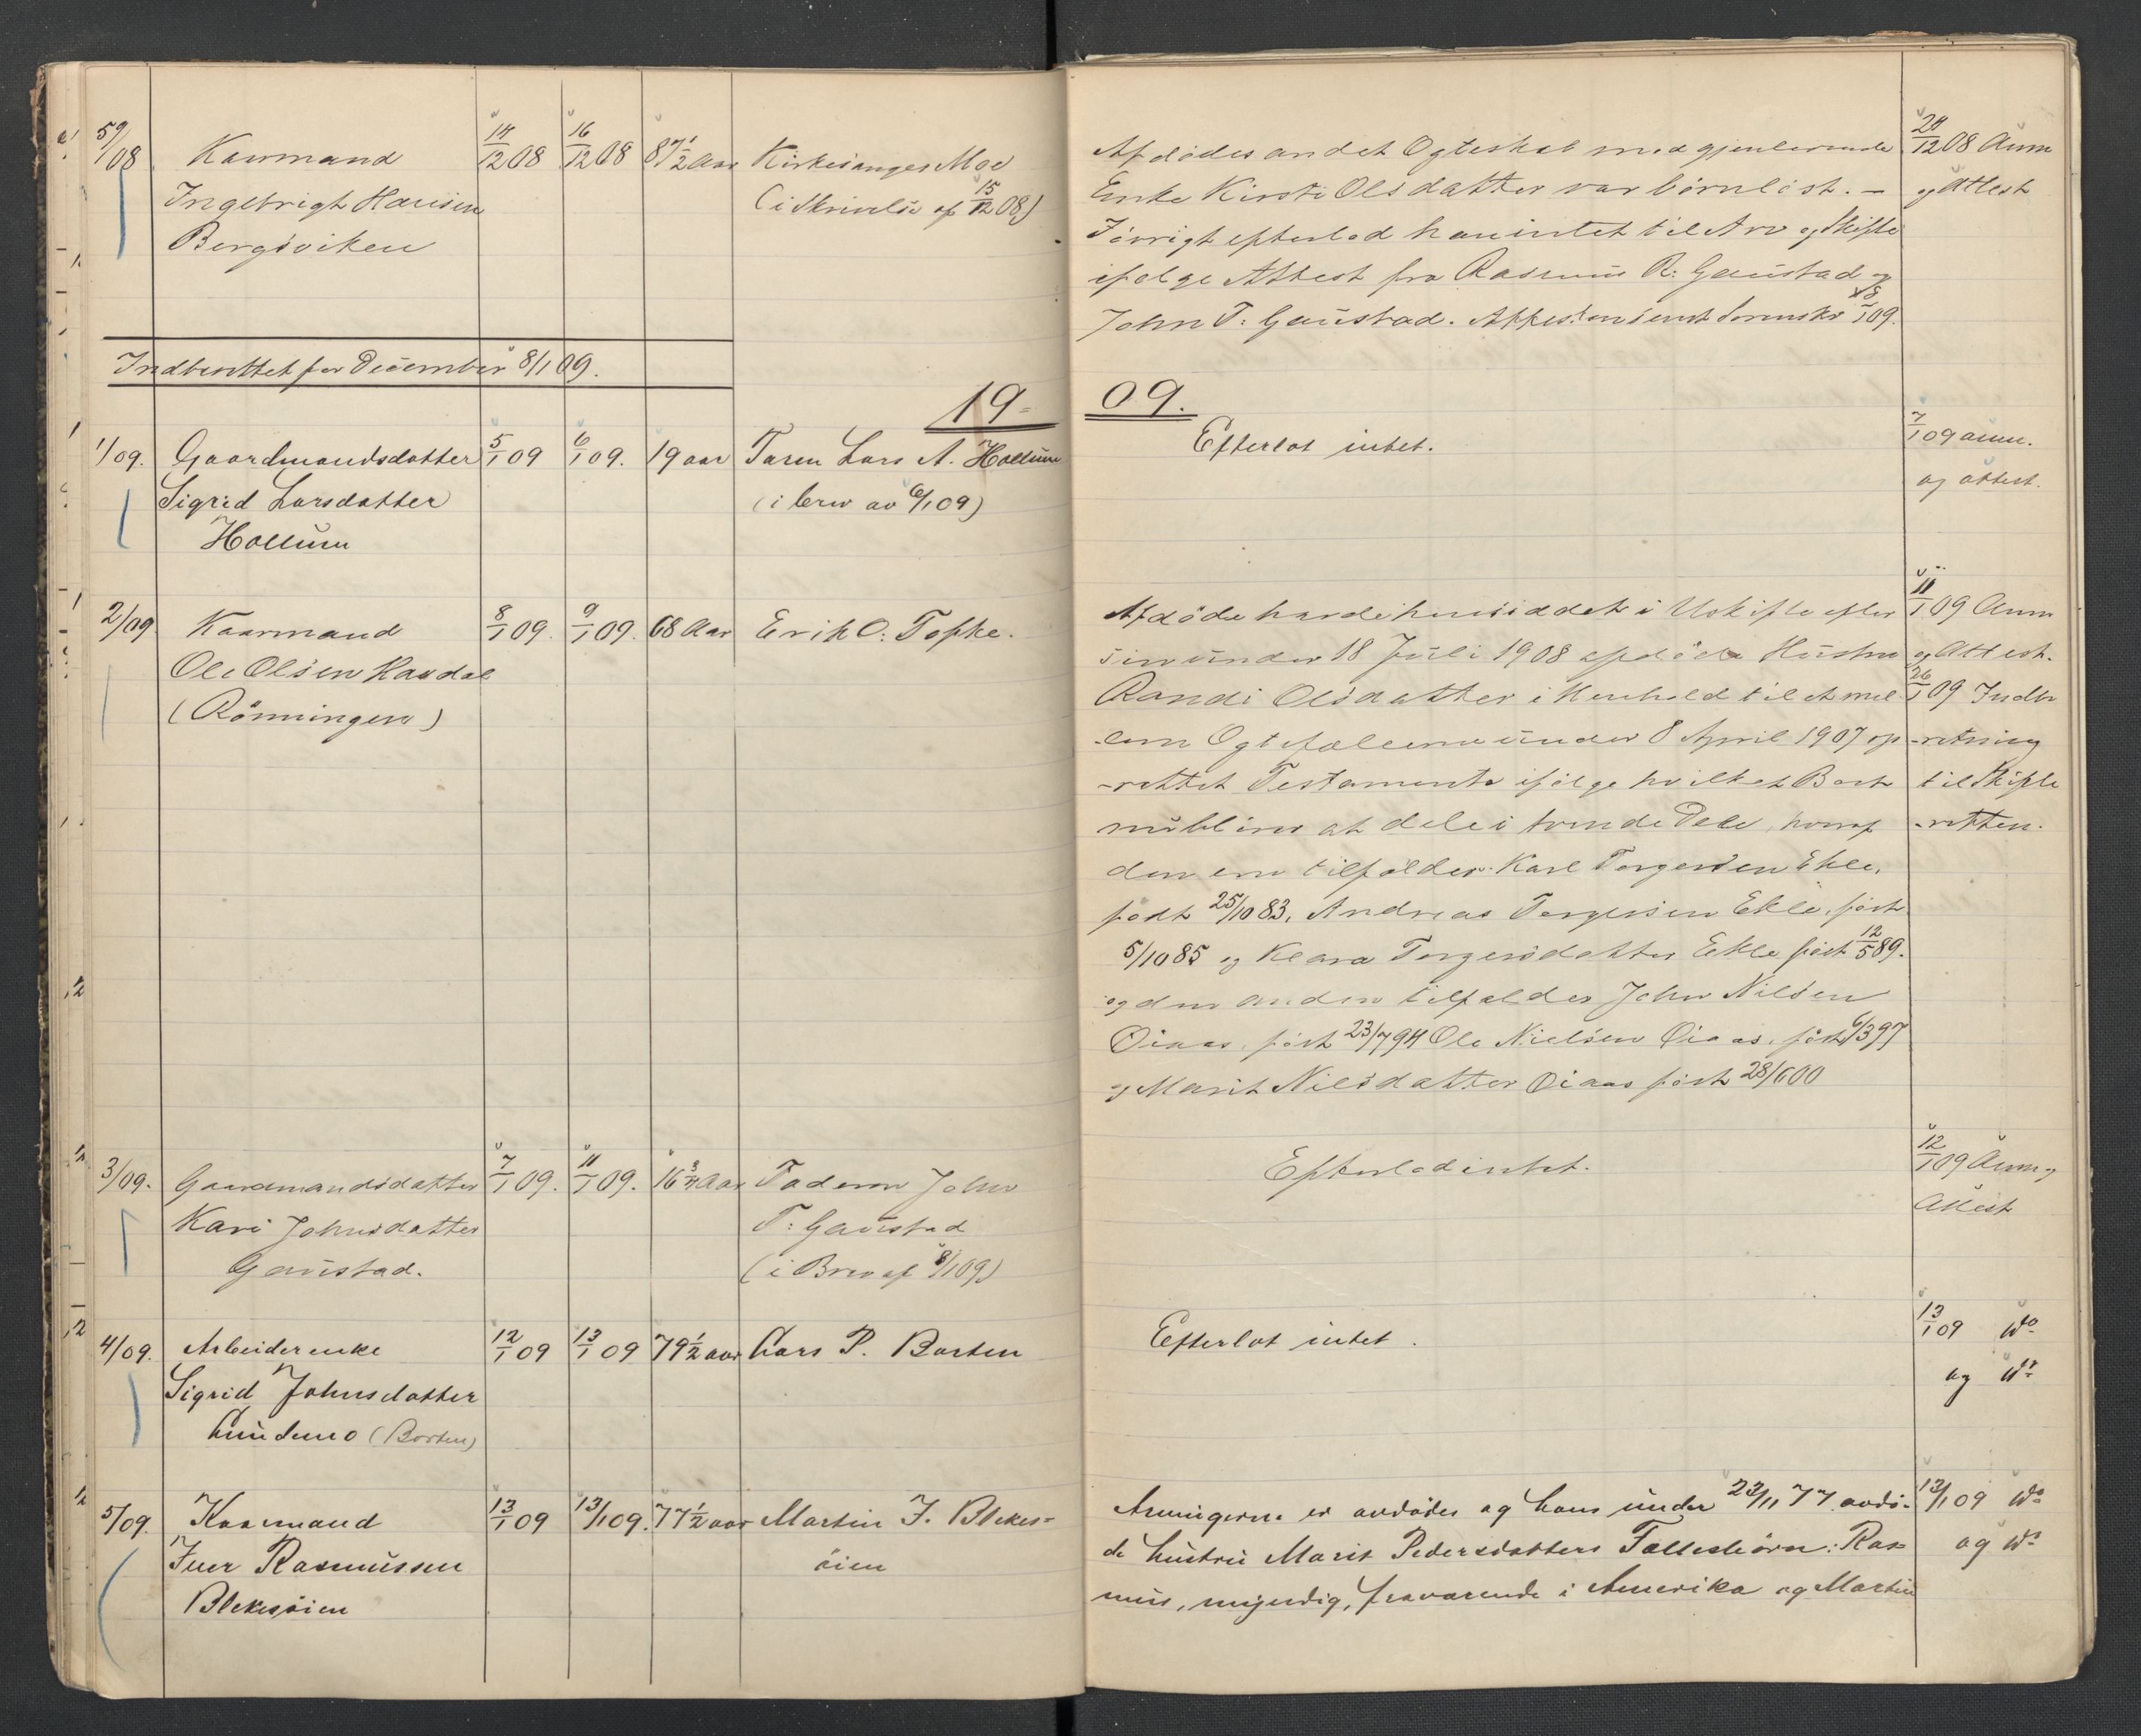 59/08 Kaarmand 14/12 08 16/12 08 87 1/2 Aar Kirkesanger Moe
Ingebrigt Hansen (i Skrivelse af 15/12 08)
Bergsviken
Afdødes andet Ægteskab med gjenlevende
Enke Kirsti Olsdatter var børnløst. –
Iøvrigt efterlod han intet til Arv og Skifte
ifølge Attest fra Rasmus R. Gaustad og
John T. Gaustad. Attesten sendt Sorenskr 8/1 09.
24/12 08 Anm
og Attest
Indberettet for December 8/1 09.
19-09.
1/09. Gaardmandsdatter 5/1 09 6/1 09. 19 aar Faren Lars A. Hollum
Sigrid Larsdatter (i brev av 6/1 09)
Hollum
Efterlot intet.
7/1 09 anm.
og attest.
2/09 Kaarmand 8/1 09. 9/1 09. 68 Aar Erik O. Fopke.
Ole Olsen Haudal
(Rønningen)
Afdøde havde hensiddet i Uskifte efter
sin under 18 Juli 1908 afdøde Hustru
Randi Olsdatter i Henhold til et mel-
-lem Ægtefællerne under 8 April 1907 op
-rettet Testamente ifølge hvilket Boets
midler at dele i tvende Dele, hvoraf
den ene tilfalder Karl Torgersen Ekle,
født 25/10 83, Andreas Torgersen Ekle, født
5/10 85 og Klara Torgersdatter Ekle født 12/5 89.
og den anden tilfalder John Nilsen
Øiaas, født 23/7 94 Ole Nielsen Øiaas, født 6/3 97
og Marit Nilsdatter Øiaas født 28/6 00
11/1 09 Anm
og Attest.
26/1 09 Indbe
-retning
til Skifte
-retten.
3/09. Gaardmandsdatter 7/1 09. 11/1 09. 16 3/4 Aar Faderen John
Kari Johnsdatter T. Gaustad
Gaustad. (i Brev af 8/1 09)
Efterlod intet.
12/1 09 Anm og
Attest
4/09. Arbeiderenke 12/1 09 13/1 09 79 1/2 aar Lars P. Borten
Sigrid Johnsdatter
Lundemo (Borten)
Efterlot intet.
13/1 09 do
og do
5/09. Kaarmand 13/1 09 13/1 09. 77 1/2 aar Martin I. Blekes-
Iver Rasmussen øien
Blekesøien
Arvingerne er avdødes og hans under 23/11 77 avdø-
de hustru Marit Pedersdatters Fællesbørn: Ras-
mus, myndig, fraværende i Amerika og Martin
13/1 09 do
og do